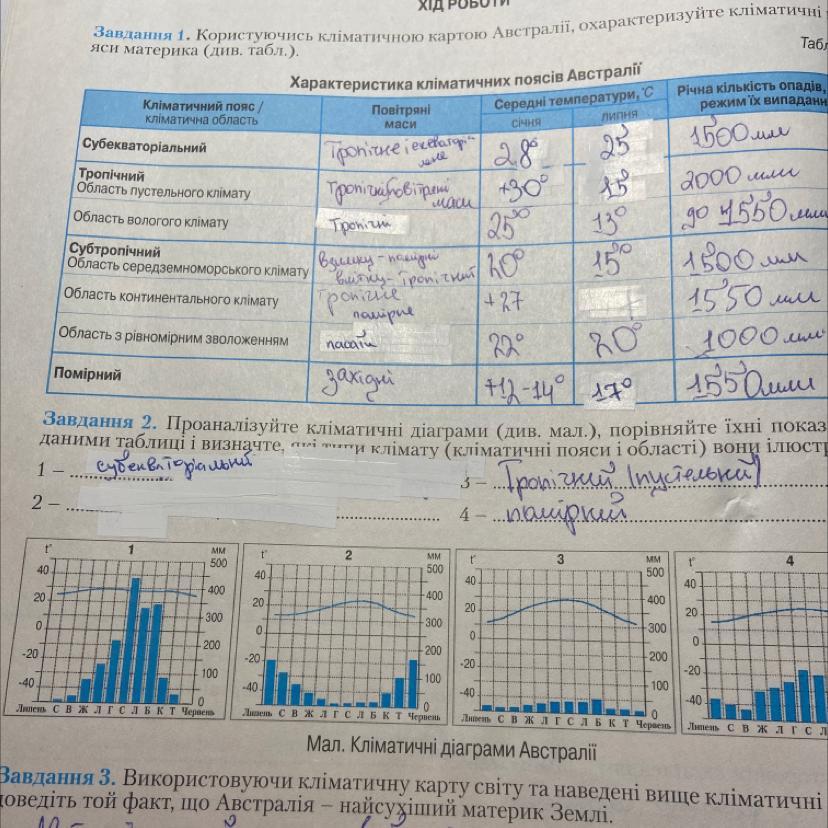 ХІД РОБОТИ
Завдання 1. Користуючись кліматичною картою Австралії, охарактеризуйте кліматичні
яси материка (див. табл.).
Табл
Характеристика кліматичних поясів Австралії
Кліматичний пояс / кліматична область Повітряні маси Середні температури, °С Річна кількість опадів, режим їх випаданн
січня липня
Субекваторіальний Тропічне і екваторіальне 28° 25° 1500 мм
Тропічний
Область пустельного клімату Тропічні повітряні маси +30° 15° 2000 мм
Область вологого клімату Тропічні 25° 13° до 1550 мм
Субтропічний
Область середземноморського клімату взимку - помірні влітку - Тропічний 20° 15° 1500 мм
Область континентального клімату Тропічне помірне +27 1550 мм
Область з рівномірним зволоженням пасати 22° 20° 1000 мм
Помірний західні +12-14° 17° 1550 мм
Завдання 2. Проаналізуйте кліматичні діаграми (див. мал.), порівняйте їхні показ
даними таблиці і визначте, які типи клімату (кліматичні пояси і області) вони ілюстр
1 – субекваторіальний 3 – Тропічний (пустельний)
2 – 4 – помірний
t° 1 мм t° 2 мм t° 3 мм t° 4
40 500 40 500 40 500 40
20 400 20 400 20 400 20
0 300 0 300 0 300 0
-20 200 -20 200 -20 200 -20
-40 100 -40 100 -40 100 -40
0 0 0
Липень С В Ж Л Г С Л Б К Т Червень Липень С В Ж Л Г С Л Б К Т Червень Липень С В Ж Л Г С Л Б К Т Червень Липень С В Ж Л Г С Л
Мал. Кліматичні діаграми Австралії
Завдання 3. Використовуючи кліматичну карту світу та наведені вище кліматичні
доведіть той факт, що Австралія – найсухіший материк Землі.